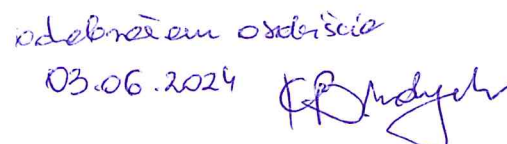 odebrałam osobiście
03.06.2024